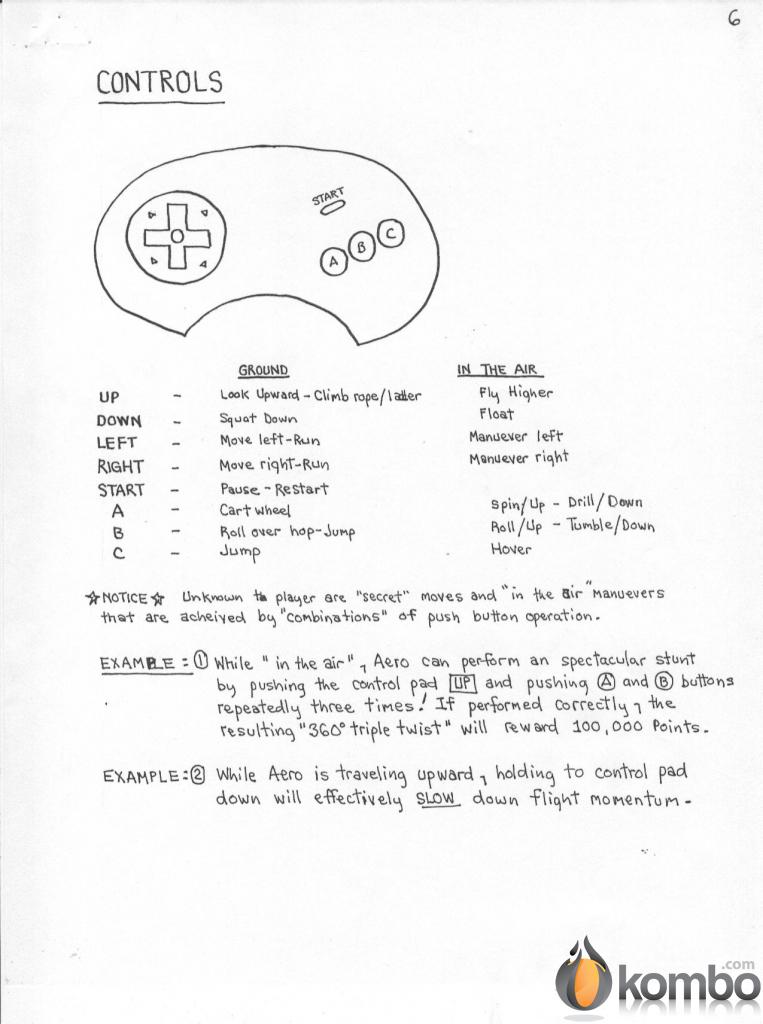 6
CONTROLS
START
A B C
GROUND IN THE AIR
UP - Look Upward - Climb rope/ladder Fly Higher
DOWN - Squat Down Float
LEFT - Move left-Run Manuever left
RIGHT - Move right-Run Manuever right
START - Pause - Restart
A - Cart wheel Spin/Up - Drill/Down
B - Roll over hop-Jump Roll/Up - Tumble/Down
C - Jump Hover
☆NOTICE☆ Unknown to player are "secret" moves and "in the air" manuevers
that are acheived by "combinations" of push button operation.
EXAMPLE: ① While "in the air", Aero can perform an spectacular stunt
by pushing the control pad UP and pushing Ⓐ and Ⓑ buttons
repeatedly three times! If performed correctly, the
resulting "360° triple twist" will reward 100,000 Points.
EXAMPLE: ② While Aero is traveling upward, holding to control pad
down will effectively SLOW down flight momentum.
kombo.com